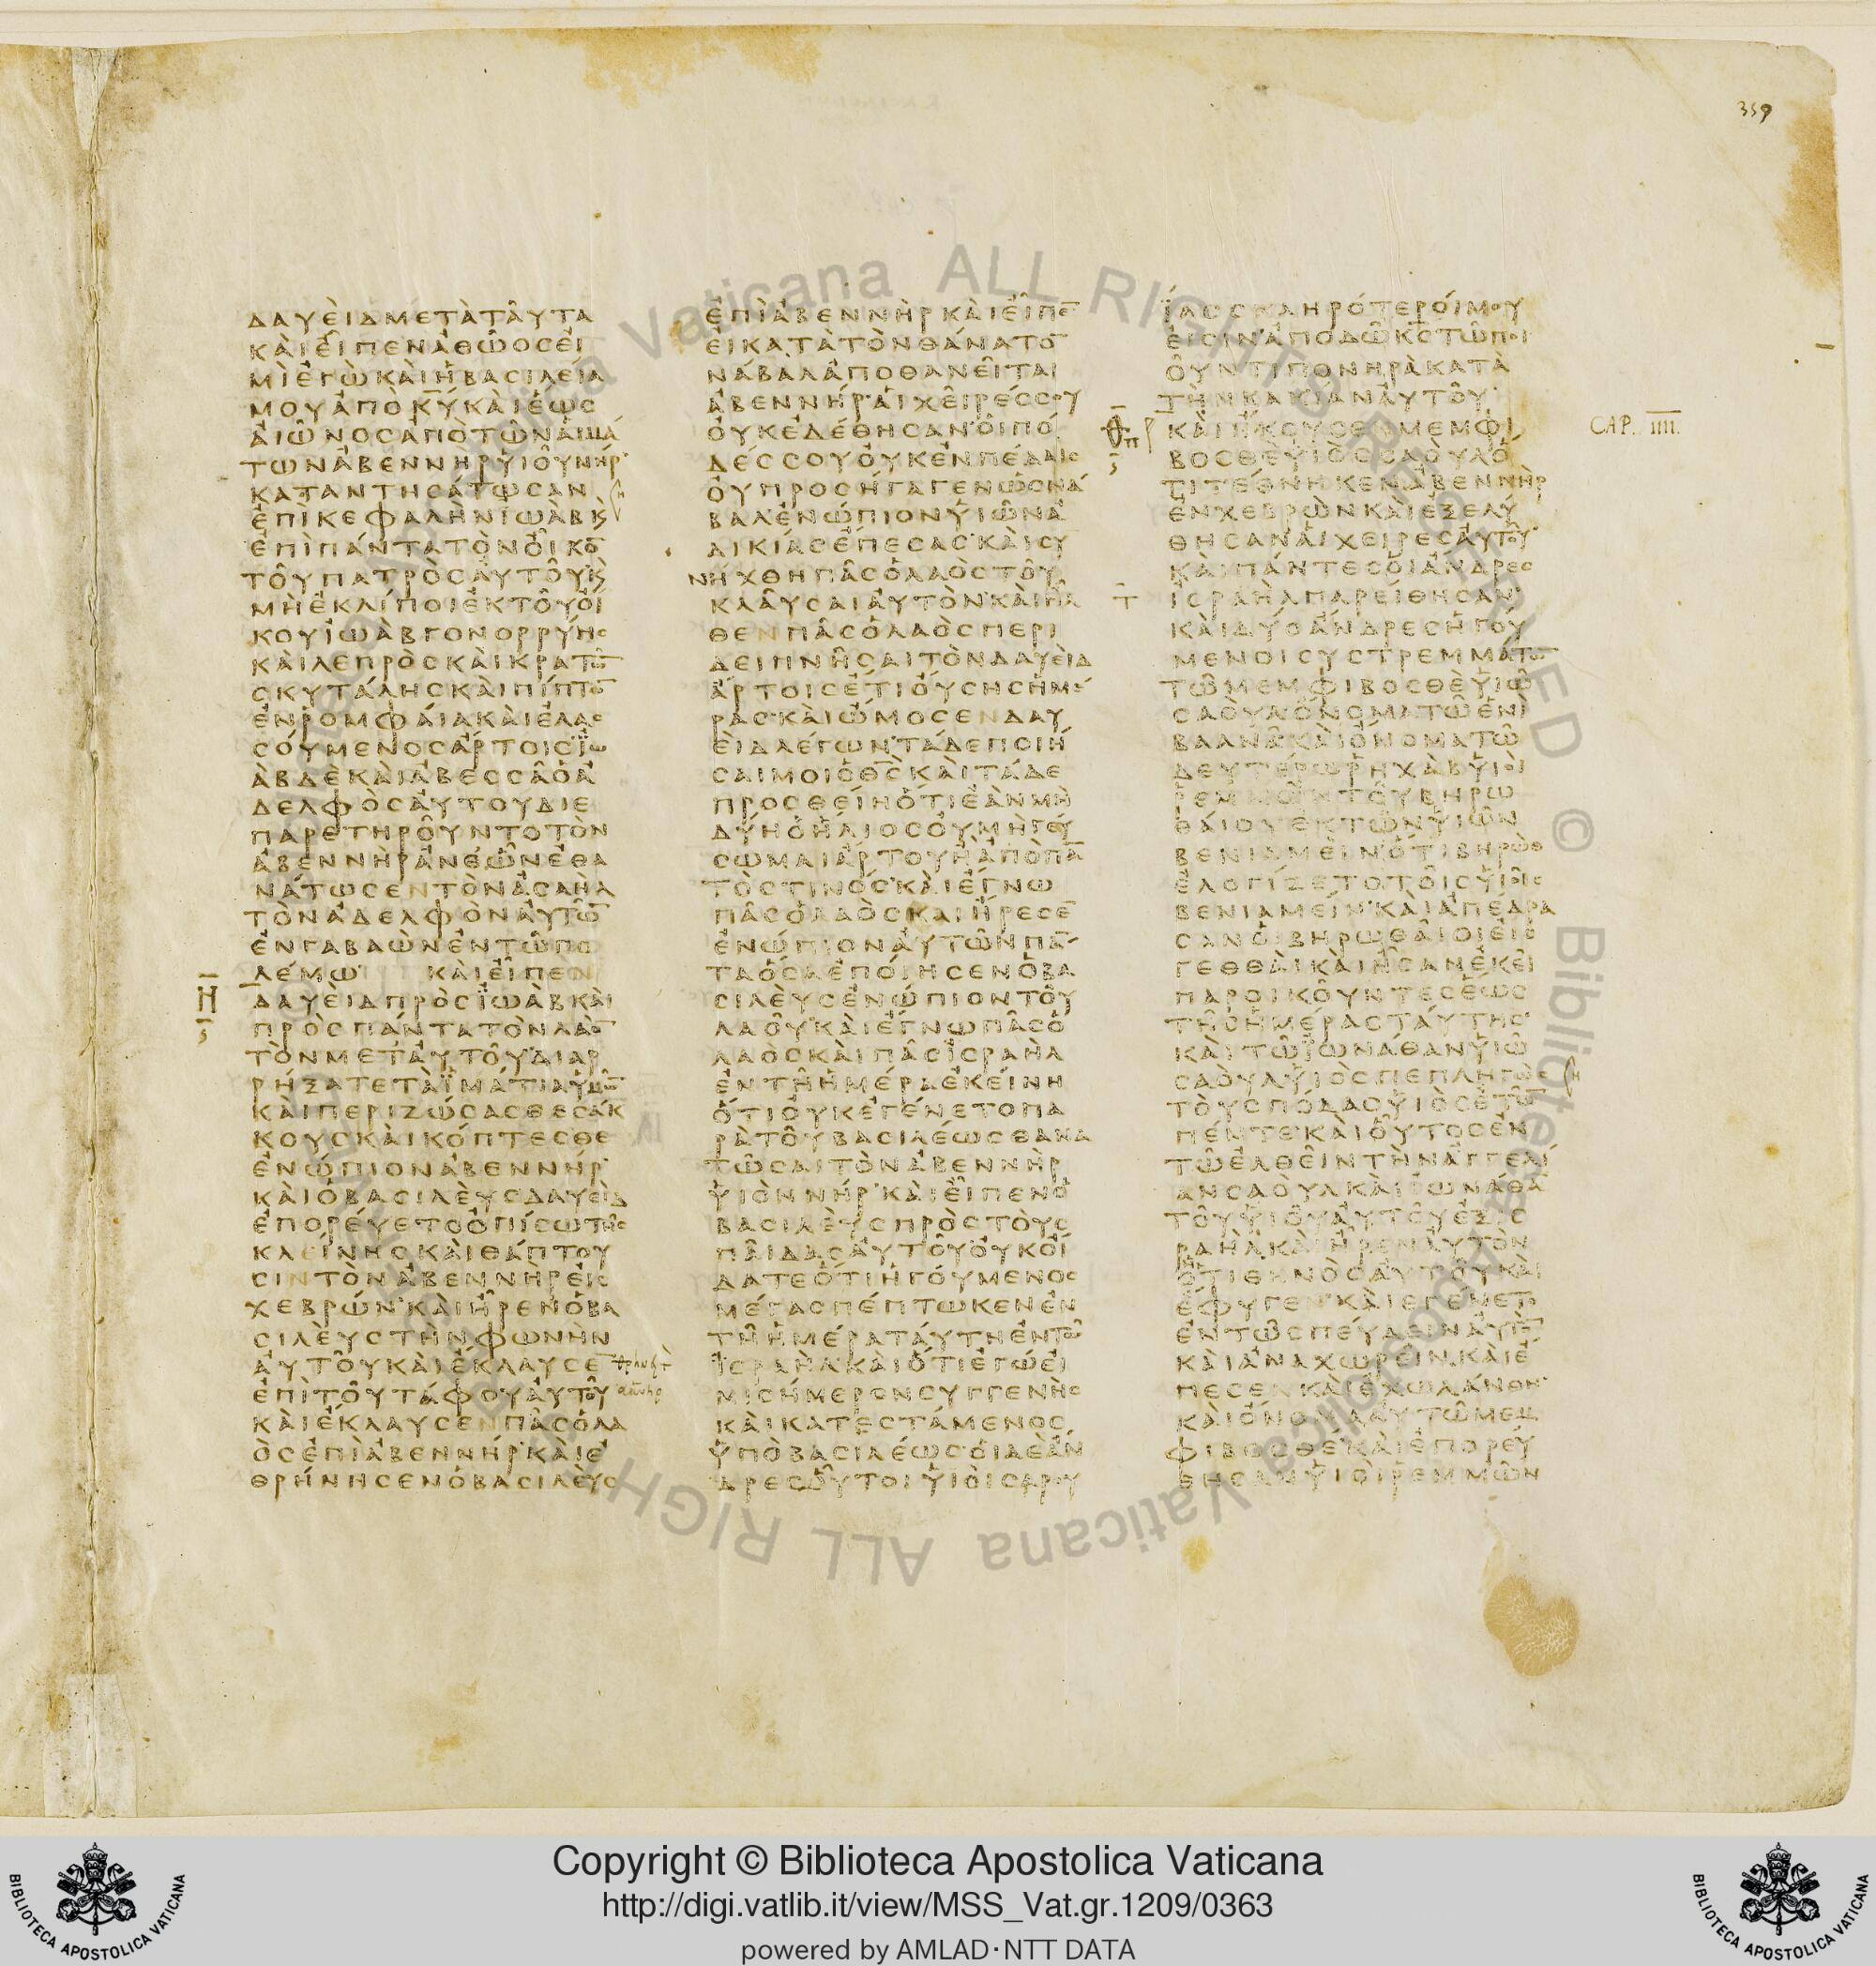 359
ΔΑΥΕΙΔΜΕΤΑΤΑΥΤΑ
ΚΑΙΕΙΠΕΝΑΘΩΟΣΕΙ
ΜΙΕΓΩΚΑΙΗΒΑΣΙΛΕΙΑ
ΜΟΥΑΠΟΚΥΚΑΙΕΩΣ
ΑΙΩΝΟΣΑΠΟΤΩΝΑΙΜΑ
ΤΩΝΑΒΕΝΝΗΡΥΙΟΥΝΗΡ
ΚΑΤΑΝΤΗΣΑΤΩΣΑΝ
ΕΠΙΚΕΦΑΛΗΝΙΩΑΒΚ
ΕΠΙΠΑΝΤΑΤΟΝΟΙΚΟ
ΤΟΥΠΑΤΡΟΣΑΥΤΟΥΚ
ΜΗΕΚΛΙΠΟΙΕΚΤΟΥΟΙ
ΚΟΥΙΩΑΒΓΟΝΟΡΡΥΗΣ
ΚΑΙΛΕΠΡΟΣΚΑΙΚΡΑΤΩ
ΣΚΥΤΑΛΗΣΚΑΙΠΙΠΤΩ
ΕΝΡΟΜΦΑΙΑΚΑΙΕΛΑΣ
ΣΟΥΜΕΝΟΣΑΡΤΟΙΣΙΩ
ΑΒΔΕΚΑΙΑΒΕΣΣΑΟΑ
ΔΕΛΦΟΣΑΥΤΟΥΔΙΕ
ΠΑΡΕΤΗΡΟΥΝΤΟΤΟΝ
ΑΒΕΝΝΗΡΑΝΘΩΝΕΘΑ
ΝΑΤΩΣΕΝΤΟΝΑΣΑΗΛ
ΤΟΝΑΔΕΛΦΟΝΑΥΤΩ
ΕΝΓΑΒΑΩΝΕΝΤΩΠΟ
ΛΕΜΩ ΚΑΙΕΙΠΕΝ
ΔΑΥΕΙΔΠΡΟΣΙΩΑΒΚΑΙ
ΠΡΟΣΠΑΝΤΑΤΟΝΛΑΟ
ΤΟΝΜΕΤΑΥΤΟΥΔΙΑΡ
ΡΗΞΑΤΕΤΑΙΜΑΤΙΑΥΜΩ
ΚΑΙΠΕΡΙΖΩΣΑΣΘΕΣΑΚ
ΚΟΥΣΚΑΙΚΟΠΤΕΣΘΕ
ΕΝΩΠΙΟΝΑΒΕΝΝΗΡ
ΚΑΙΟΒΑΣΙΛΕΥΣΔΑΥΕΙΔ
ΕΠΟΡΕΥΕΤΟΟΠΙΣΩΤΗΣ
ΚΛΕΙΝΗΣΚΑΙΘΑΠΤΟΥ
ΣΙΝΤΟΝΑΒΕΝΝΗΡΕΙΣ
ΧΕΒΡΩΝΚΑΙΗΡΕΝΟΒΑ
ΣΙΛΕΥΣΤΗΝΦΩΝΗΝ
ΑΥΤΟΥΚΑΙΕΚΛΑΥΣΕ
ΕΠΙΤΟΥΤΑΦΟΥΑΥΤΟΥ
ΚΑΙΕΚΛΑΥΣΕΝΠΑΣΟΛΑ
ΟΣΕΠΙΑΒΕΝΝΗΡΚΑΙΕ
ΘΡΗΝΗΣΕΝΟΒΑΣΙΛΕΥΣ
ΕΠΙΑΒΕΝΝΗΡΚΑΙΕΙΠΕ
ΕΙΚΑΤΑΤΟΝΘΑΝΑΤΟ
ΝΑΒΑΛΑΠΟΘΑΝΕΙΤΑΙ
ΑΒΕΝΝΗΡΑΙΧΕΙΡΕΣΣΟΥ
ΟΥΚΕΔΕΘΗΣΑΝΟΙΠΟ
ΔΕΣΣΟΥΟΥΚΕΝΠΕΔΑΙΣ
ΟΥΠΡΟΣΗΓΑΓΕΝΩΣΝΑ
ΒΑΛΕΝΩΠΙΟΝΥΙΩΝΑ
ΔΙΚΙΑΣΕΠΕΣΑΣΚΑΙΣΥ
ΝΗΧΘΗΠΑΣΟΛΑΟΣΤΟΥ
ΚΛΑΥΣΑΙΑΥΤΟΝΚΑΙΗΛ
ΘΕΝΠΑΣΟΛΑΟΣΠΕΡΙ
ΔΕΙΠΝΗΣΑΙΤΟΝΔΑΥΕΙΔ
ΑΡΤΟΙΣΕΤΙΟΥΣΗΣΗΜΕ
ΡΑΣΚΑΙΩΜΟΣΕΝΔΑΥ
ΕΙΔΛΕΓΩΝΤΑΔΕΠΟΙΗ
ΣΑΙΜΟΙΟΘΣΚΑΙΤΑΔΕ
ΠΡΟΣΘΕΙΗΟΤΙΕΑΝΜΗ
ΔΥΗΟΗΛΙΟΣΟΥΜΗΓΕΥ
ΣΩΜΑΙΑΡΤΟΥΗΑΠΟΠΑ
ΤΟΣΤΙΝΟΣΚΑΙΕΓΝΩ
ΠΑΣΟΛΑΟΣΚΑΙΗΡΕΣΕ
ΕΝΩΠΙΟΝΑΥΤΩΝΠΑ
ΤΑΟΣΑΕΠΟΙΗΣΕΝΟΒΑ
ΣΙΛΕΥΣΕΝΩΠΙΟΝΤΟΥ
ΛΑΟΥΚΑΙΕΓΝΩΠΑΣΟ
ΛΑΟΣΚΑΙΠΑΣΙΣΡΑΗΛ
ΕΝΤΗΗΜΕΡΑΕΚΕΙΝΗ
ΟΤΙΟΥΚΕΓΕΝΕΤΟΠΑ
ΡΑΤΟΥΒΑΣΙΛΕΩΣΘΑΝΑ
ΤΩΣΑΙΤΟΝΑΒΕΝΝΗΡ
ΥΙΟΝΝΗΡΚΑΙΕΙΠΕΝΟ
ΒΑΣΙΛΕΥΣΠΡΟΣΤΟΥΣ
ΠΑΙΔΑΣΑΥΤΟΥΟΥΚΟΙ
ΔΑΤΕΟΤΙΗΓΟΥΜΕΝΟΣ
ΜΕΓΑΣΠΕΠΤΩΚΕΝΕΝ
ΤΗΗΜΕΡΑΤΑΥΤΗΕΝΤΩ
ΙΣΡΑΗΛΚΑΙΟΤΙΕΓΩΕΙ
ΜΙΣΗΜΕΡΟΝΣΥΓΓΕΝΗΣ
ΚΑΙΚΑΤΕΣΤΑΜΕΝΟΣ
ΥΠΟΒΑΣΙΛΕΩΣΟΙΔΕΑΝ
ΔΡΕΣΟΥΤΟΙΥΙΟΙΣΑΡΟΥ
ΙΑΣΣΚΛΗΡΟΤΕΡΟΙΜΟΥ
ΕΙΣΙΝΑΠΟΔΩΚΣΤΩΠΟΙ
ΟΥΝΤΙΠΟΝΗΡΑΚΑΤΑ
ΤΗΝΚΑΚΙΑΝΑΥΤΟΥ
ΚΑΙΗΚΟΥΣΕΝΜΕΜΦΙ
ΒΟΣΘΕΥΙΟΣΣΑΟΥΛΟ
ΤΙΤΕΘΝΗΚΕΝΑΒΕΝΝΗΡ
ΕΝΧΕΒΡΩΝΚΑΙΕΞΕΛΥ
ΘΗΣΑΝΑΙΧΕΙΡΕΣΑΥΤΟΥ
ΚΑΙΠΑΝΤΕΣΟΙΑΝΔΡΕΣ
ΙΣΡΑΗΛΠΑΡΕΙΘΗΣΑΝ
ΚΑΙΔΥΟΑΝΔΡΕΣΗΓΟΥ
ΜΕΝΟΙΣΥΣΤΡΕΜΜΑΤΩ
ΤΩΜΕΜΦΙΒΟΣΘΕΥΙΩ
ΣΑΟΥΛΟΝΟΜΑΤΩΕΝΙ
ΒΑΑΝΑΚΑΙΟΝΟΜΑΤΩ
ΔΕΥΤΕΡΩΡΗΧΑΒΥΙΟΙ
ΡΕΜΜΩΝΤΟΥΒΗΡΩ
ΘΑΙΟΥΕΚΤΩΝΥΙΩΝ
ΒΕΝΙΑΜΕΙΝΟΤΙΒΗΡΩΘ
ΕΛΟΓΙΖΕΤΟΤΟΙΣΥΙΟΙΣ
ΒΕΝΙΑΜΕΙΝΚΑΙΑΠΕΔΡΑ
ΣΑΝΟΙΒΗΡΩΘΑΙΟΙΕΙΣ
ΓΕΘΘΑΙΚΑΙΗΣΑΝΕΚΕΙ
ΠΑΡΟΙΚΟΥΝΤΕΣΕΩΣ
ΤΗΣΗΜΕΡΑΣΤΑΥΤΗΣ
ΚΑΙΤΩΙΩΝΑΘΑΝΥΙΩ
ΣΑΟΥΛΥΙΟΣΠΕΠΛΗΓΩΣ
ΤΟΥΣΠΟΔΑΣΥΙΟΣΕΤΩ
ΠΕΝΤΕΚΑΙΟΥΤΟΣΕΝ
ΤΩΕΛΘΕΙΝΤΗΝΑΓΓΕΛΙ
ΑΝΣΑΟΥΛΚΑΙΙΩΝΑΘΑ
ΤΟΥΥΙΟΥΑΥΤΟΥΕΞΙΣ
ΡΑΗΛΚΑΙΗΡΕΝΑΥΤΟΝ
ΟΤΙΘΗΝΟΣΑΥΤΟΥΚΑΙ
ΕΦΥΓΕΝΚΑΙΕΓΕΝΕΤΟ
ΕΝΤΩΣΠΕΥΔΕΙΝΑΥΤΟ
ΚΑΙΑΝΑΧΩΡΕΙΝΚΑΙΕ
ΠΕΣΕΝΚΑΙΕΧΩΛΑΝΘΗ
ΚΑΙΟΝΟΜΑΑΥΤΩΜΕΜ
ΦΙΒΟΣΘΕΚΑΙΕΠΟΡΕΥ
ΘΗΣΑΝΥΙΟΙΡΕΜΜΩΝ
CAP. IIII.
Copyright © Biblioteca Apostolica Vaticana
http://digi.vatlib.it/view/MSS_Vat.gr.1209/0363
powered by AMLAD·NTT DATA
BIBLIOTECA APOSTOLICA VATICANA
BIBLIOTECA APOSTOLICA VATICANA